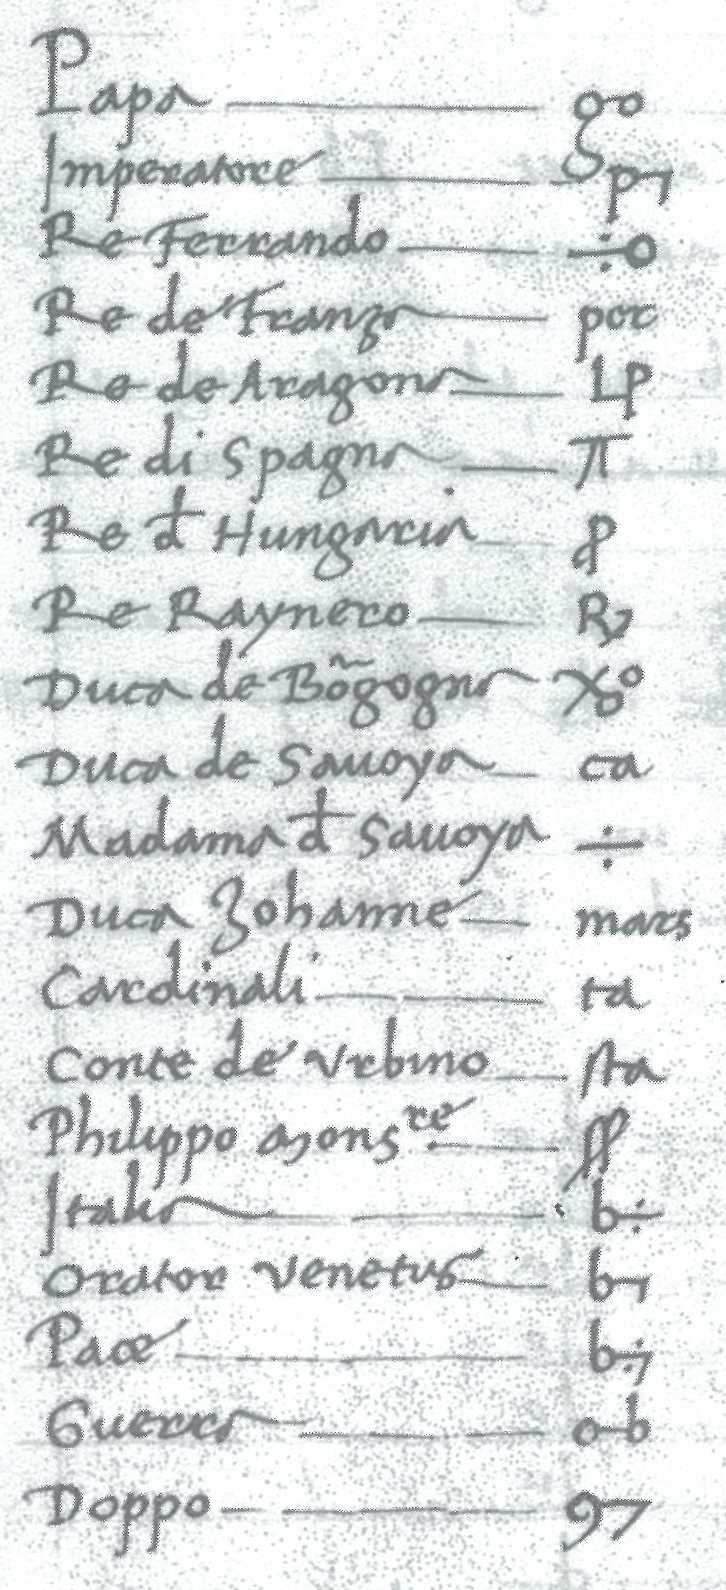 Papa
Imperatore
Re Ferrando
Re de Franza por
Re de Aragona Lp
Re di Spagna π
Re đ Hungaria
Re Raynero
Duca de Bõgogna
Duca de Sauoya ca
Madama đ Sauoya ÷
Duca Zohanne mars
Cardinali ta
Conte de Vrbino sta
Philippo Monsre ff
Italia b÷
Orator Venetus
Pace
Guerra
Doppo